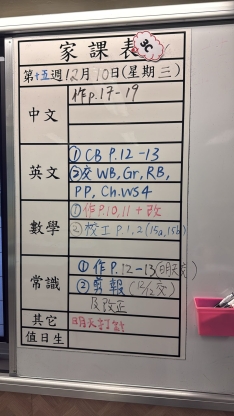 家課表
第十五週12月10日(星期三)
中文
作p.17-19
英文
① CB P.12-13
② 交 WB, Gr, RB,
PP, Ch.WS4
數學
① 作P.10,11 + 改
② 校工 P.1,2 (15a,15b)
常識
① 作 P.12-13 (明天交)
② 剪報 (12/12交)
及改正
其它
值日生